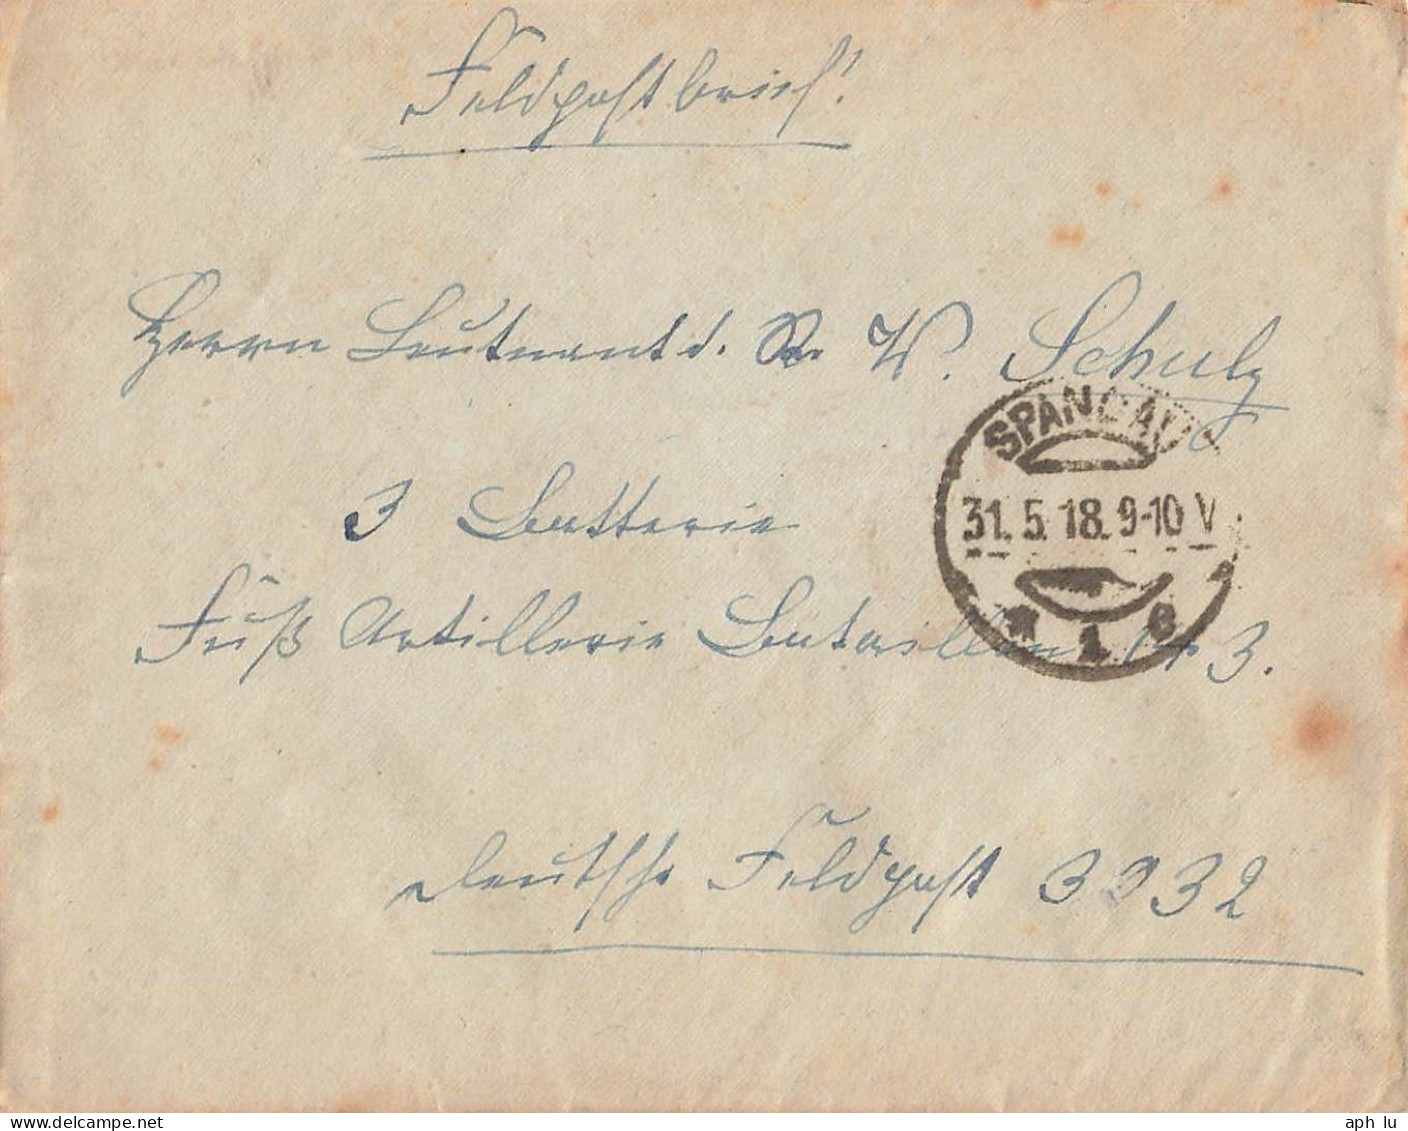 Feldpostbrief!
Herrn Leutnant d. R. W. Schulz
SPANDAU
31. 5. 18. 9-10 V
* 1 e
3 Batterie
Fuß Artillerie Bataillon 143.
Deutsche Feldpost 3932
www.delcampe.net
aph lu